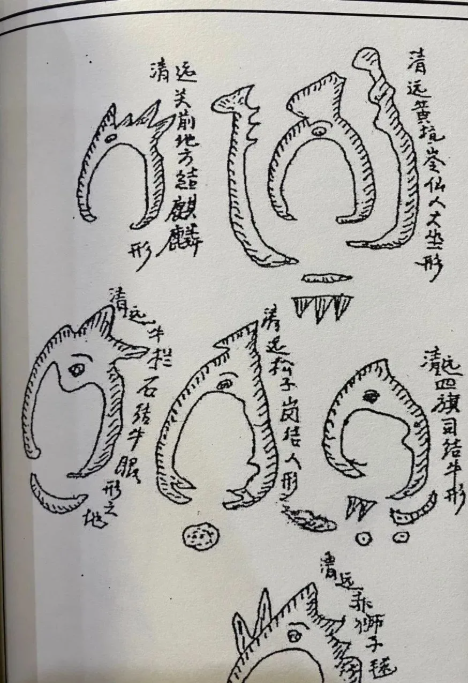 清远黄坑崟仙人大坐形
清远关前地方结麒麟形
清远四旗司结牛形
清远松子岗结人形
清远牛拦石结牛眼形之地
清远狮子毬